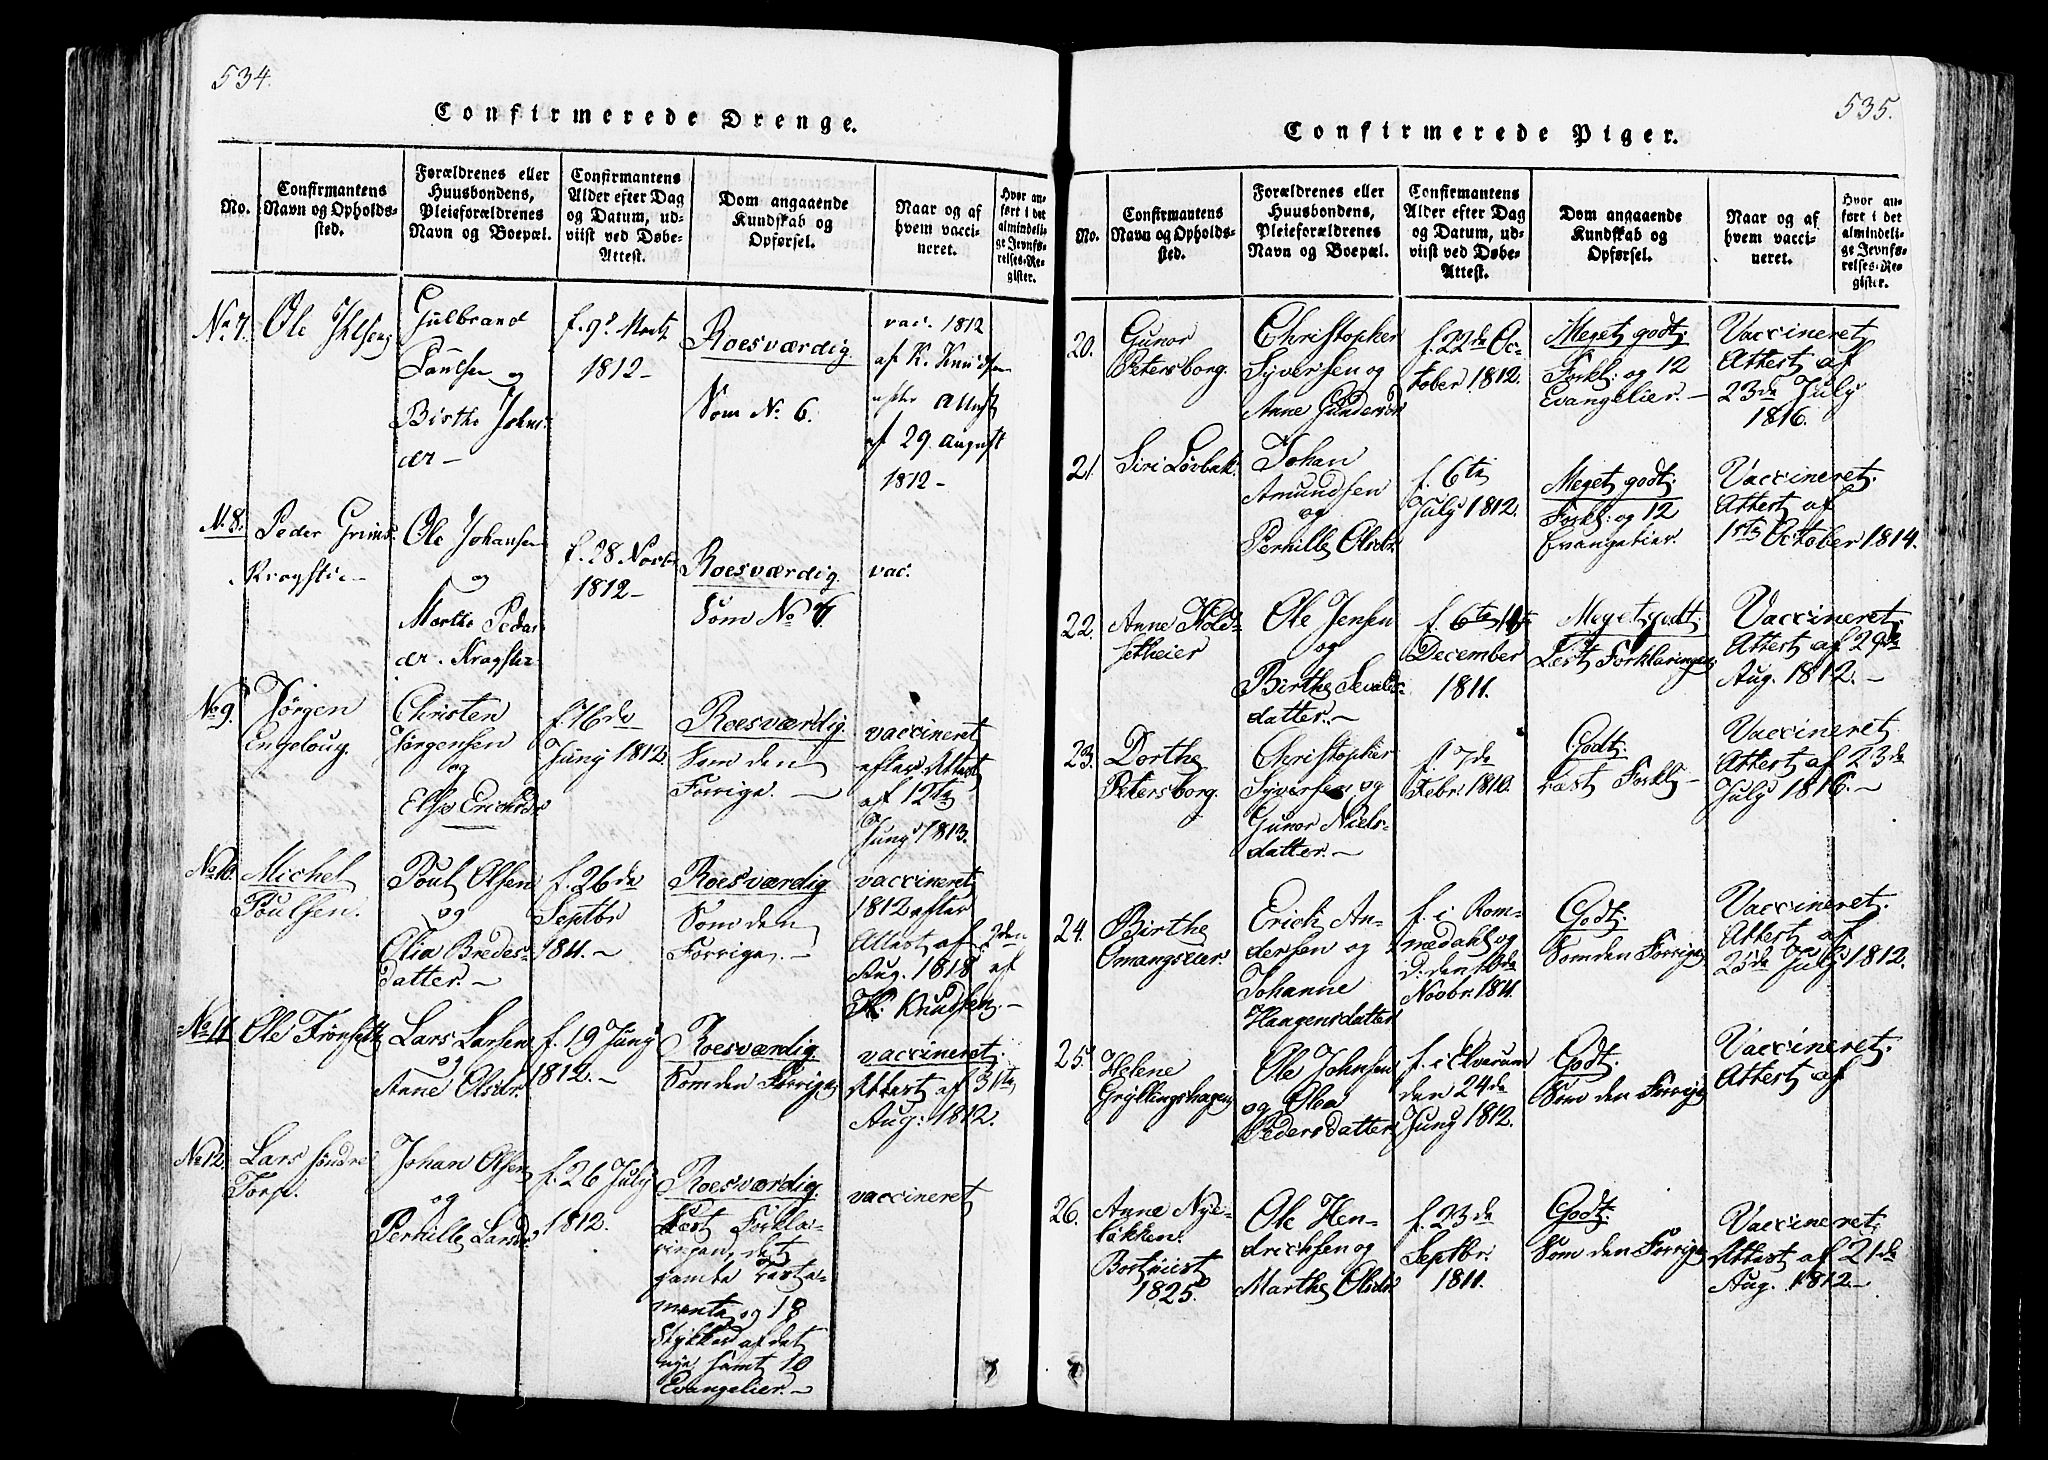 534.
Confirmerede Drenge.
No.
Confirmantens
Navn og Opholds-
sted.
Forældrenes eller
Huusbondens,
Pleieforældrenes
Navn og Boepæl.
Confirmantens
Alder efter Dag
og Datum, ud-
viist ved Døbe-
Attest.
Dom angaaende
Kundskab og
Opførsel.
Naar og af
hvem vacci-
neret.
Hvor an-
ført i det
almindeli-
ge Jevnfø-
relses-Re-
gister.
No 7.
Ole
Gulbrand
Paulsen og
Birthe Johns-
dr –
f. 9d Martz
1812 –
Roesværdig
Som No 6.
vac. 1812
af K. Knudsen
efter Attest
af 29. August
1812 –
No 8.
Peder Grims-
Kragstie –
Ole Johansen
og
Marthe Peders
dr. Kragstie
f. 28 Novbr
1812 –
Roesværdig
Som No 7.
vac.
No 9.
Jörgen
Engeloug.
Christen
Jörgensen
og
Else Ericksdr
f. 16de
Juny 1812.
Roesværdig.
Som den
Forrige. –
vaccineret
efter Attest
af 12te
Juny 1813.
No 10.
Michel
Poulsen.
Poul Olsen
og
Olia Bredes-
datter. –
f. 26de
Septbr
1811. –
Roesværdig
Som den
Forrige. –
vaccineret
1812 efter
Attest af 2den
Aug. 1818 af
K. Knudsen. –
No 11.
Ole Frönsett
Lars Larsen
og
Anne Olsdr.
f. 19 Juny
1812. –
Roesværdig
Som den Forrige
vaccineret.
Attest af 31te
Aug: 1812.
No 12.
Lars söndre
Torp.
Johan Olsen
og
Pernille Larsdr
f. 26 July
1812.
Roesværdig.
Læst Forkla-
ringen, det
gamle Testa-
mente og 18
Stykker af det
nye samt 10
Evangelier. –
vaccineret
535.
Confirmerede Piger.
No.
Confirmantens
Navn og Opholds-
sted.
Forældrenes eller
Huusbondens,
Pleieforældrenes
Navn og Boepæl.
Confirmantens
Alder efter Dag
og Datum, ud-
viist ved Døbe-
Attest.
Dom angaaende
Kundskab og
Opførsel.
Naar og af
hvem vacci-
neret.
Hvor an-
ført i det
almindeli-
ge Jevnfø-
relses-Re-
gister.
20.
Gunor
Petersborg.
Christopher
Syversen og
Anne Gundersdr
f. 22de Oc-
tober 1812.
Meget godt.
Forkl: og 12
Evangelier. –
Vaccineret
Attest af
23de July
1816.
21.
Siri Lövbak.
Johan
Amundsen
og
Pernille Olsdr.
f. 6te
July 1812.
Meget godt.
Forkl: og 12
Evangelier.
Vaccineret.
Attest af
1ste October 1814.
22.
Anne Hold-
setheier
Ole Jensen
og
Birthe Sevalds-
datter. –
f. 6te
December
1811.
Meget godt.
Læst Forklaringen.
Vaccineret.
Attest af 29de
Aug. 1812. –
23.
Dorthe
Petersborg.
Christopher
Syversen og
Gunor Niels-
datter. –
f. 7de
Febr: 1810.
Godt.
Læst Forkl: –
Vaccineret.
Attest af 23de
July 1816. –
24.
Birthe
Omangseier.
Erick An-
dersen og
Johanne
Haagensdatter
f. i Rom-
medahl og
d: den 10de
Novbr. 1811.
Godt.
Som den Forrige
Vaccineret.
Attest af
25de July 1812.
25.
Helene
Gryllingshagen
Ole Johnsen
og Olea
Pedersdatter
f. i Elverum
den 24de
Juny 1812.
Godt.
Som den Forrige
Vaccineret.
Attest af
26.
Anne Nye-
lökken.
Bortviist
1825.
Ole Hen-
dricksen og
Marthe Olsdr.
f. 23de
Septbr:
1811.
Godt.
Som den Forrige
Vaccineret.
Attest af 21de
Aug. 1812 –